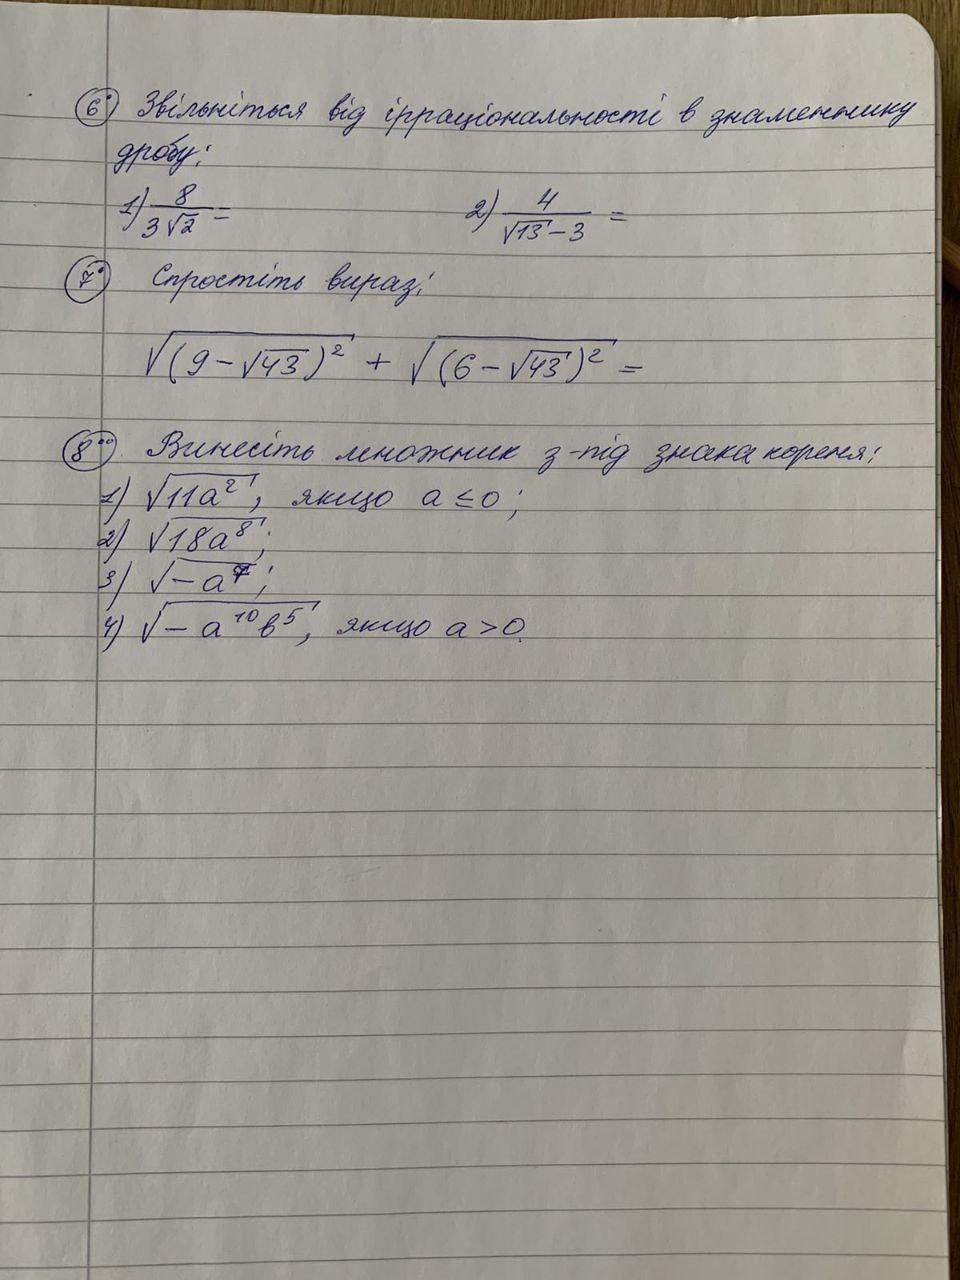 6° Звільніться від ірраціональності в знаменнику
дробу:
1) 8/(3√2) =     2) 4/(√13 - 3) =
7° Спростіть вираз:
√(9 - √43)² + √(6 - √43)² =
8°° Винесіть множник з-під знака кореня:
1) √11a², якщо a ≤ 0;
2) √18a⁸;
3) √-a⁷;
4) √-a¹⁰b⁵, якщо a > 0.